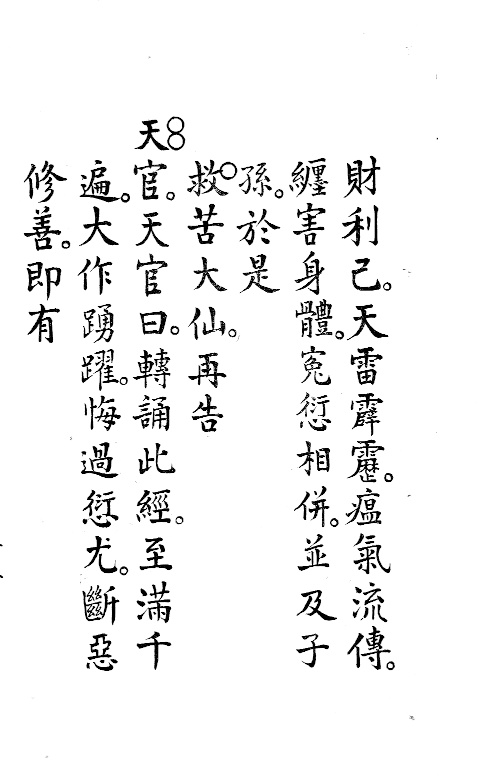 財利己。天雷霹靂。瘟氣流傳。
纏害身體。寃愆相併。並及子
孫。於是
救苦大仙。再告
天官。天官曰。轉誦此經。至滿千
遍。大作踴躍。悔過愆尤。斷惡
修善。即有